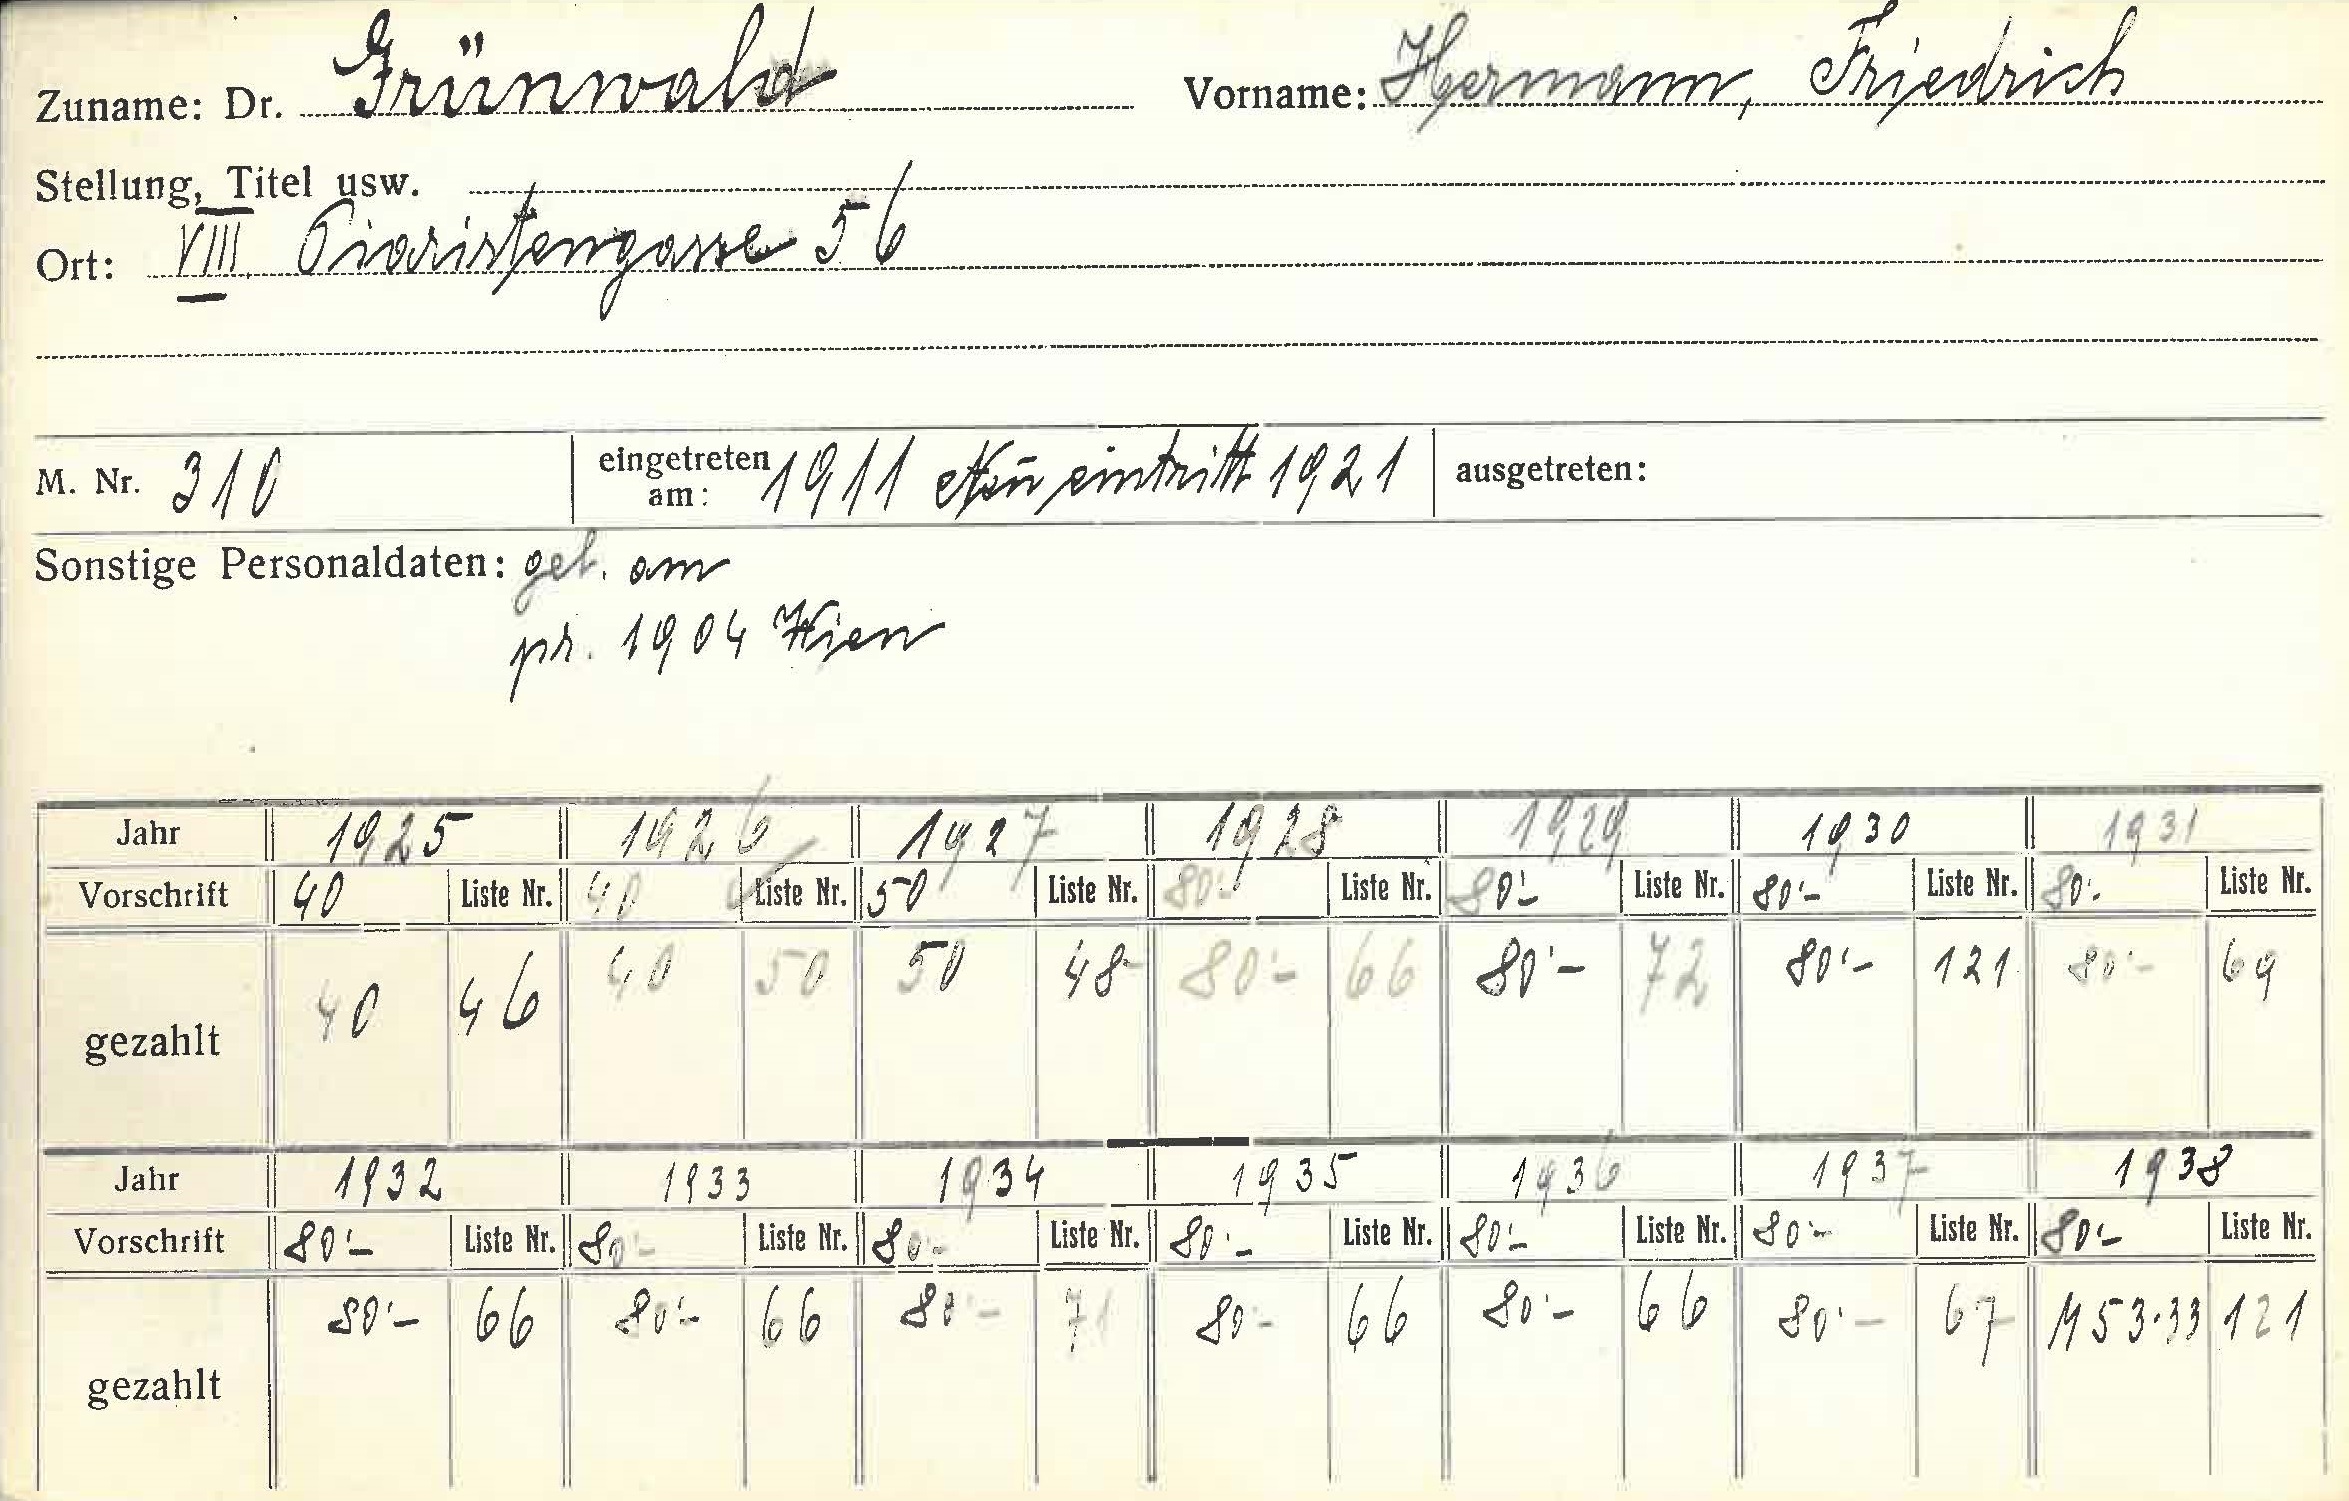 Zuname: Dr. Grünwald Vorname: Hermann, Friedrich
Stellung, Titel usw.
Ort: VIII. Piaristengasse 56
M. Nr. 310 eingetreten am: 1911 Neueintritt 1921 ausgetreten:
Sonstige Personaldaten: geb. am
pr. 1904 Wien
Jahr 1925 1926 1927 1928 1929 1930 1931
Vorschrift 40 Liste Nr. 40 Liste Nr. 50 Liste Nr. 80'- Liste Nr. 80'- Liste Nr. 80'- Liste Nr. 80'- Liste Nr.
gezahlt 40 46 40 50 50 48 80'- 66 80'- 72 80'- 121 80'- 69
Jahr 1932 1933 1934 1935 1936 1937 1938
Vorschrift 80'- Liste Nr. 80'- Liste Nr. 80'- Liste Nr. 80'- Liste Nr. 80'- Liste Nr. 80'- Liste Nr. 80'- Liste Nr.
gezahlt 80'- 66 80'- 66 80'- 71 80'- 66 80'- 66 80'- 67 M 53.33 121